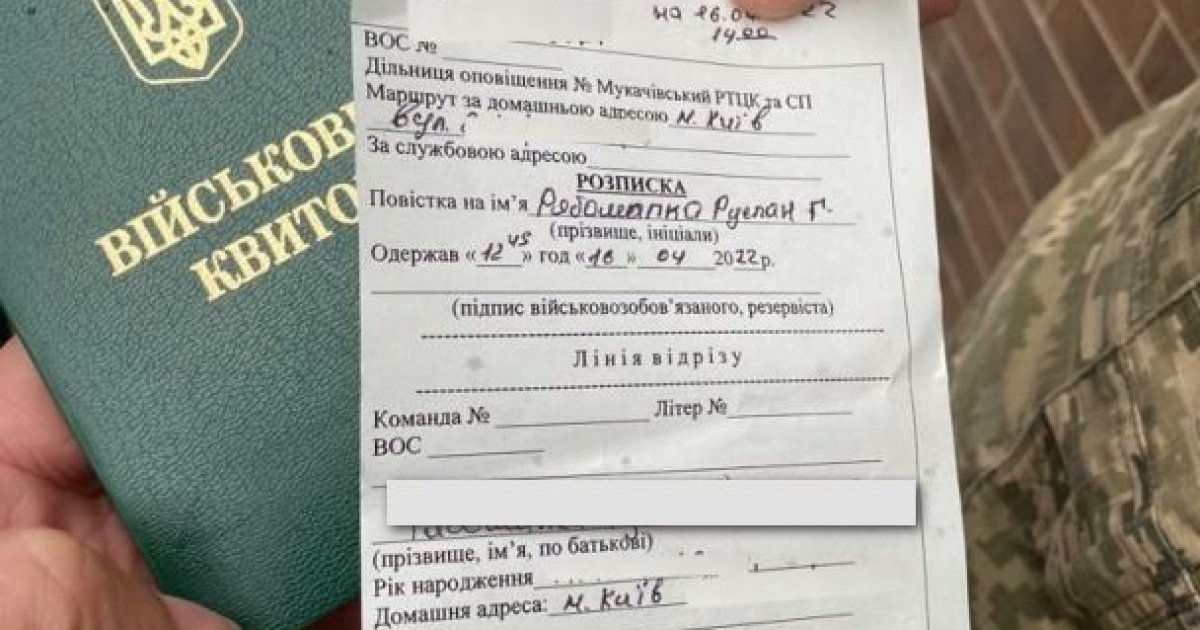 ВІЙСЬКОВ
КВИТО
на 16.04 22
14.00
ВОС №
Дільниця оповіщення № Мукачівський РТЦК та СП
Маршрут за домашньою адресою м. Київ
вул.
За службовою адресою
РОЗПИСКА
Повістка на ім’я Рябошапка Руслан Г.
(прізвище, ініціали)
Одержав «12 45» год «16» 04 2022 р.
(підпис військовозобов’язаного, резервіста)
Лінія відрізу
Команда № Літер №
ВОС
(прізвище, ім’я, по батькові)
Рік народження
Домашня адреса: м. Київ